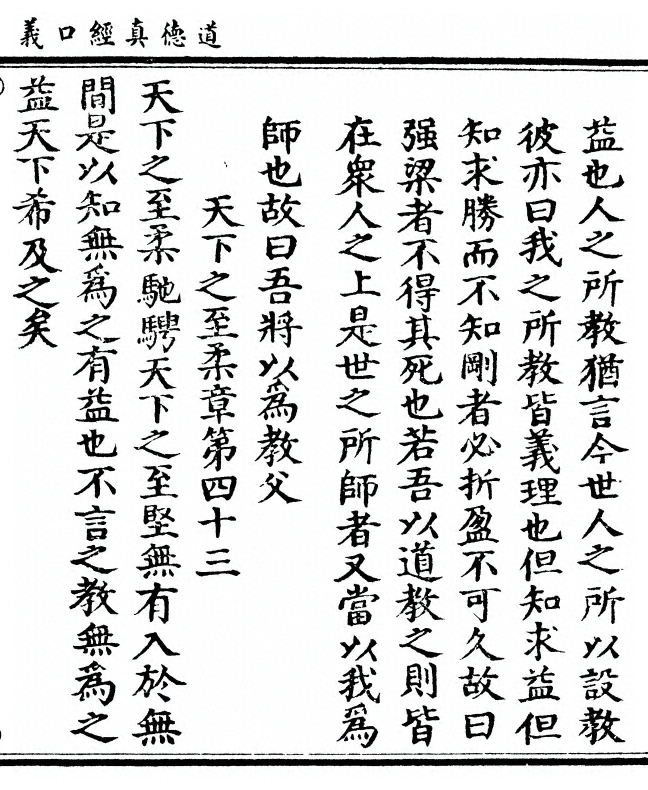 道德真經口義
益也人之所教猶言今世人之所以設教
彼亦曰我之所教皆義理也但知求益但
知求勝而不知剛者必折盈不可久故曰
强梁者不得其死也若吾以道教之則皆
在衆人之上是世之所師者又當以我爲
師也故曰吾將以爲教父
天下之至柔章第四十三
天下之至柔馳騁天下之至堅無有入於無
間是以知無爲之有益也不言之教無爲之
益天下希及之矣